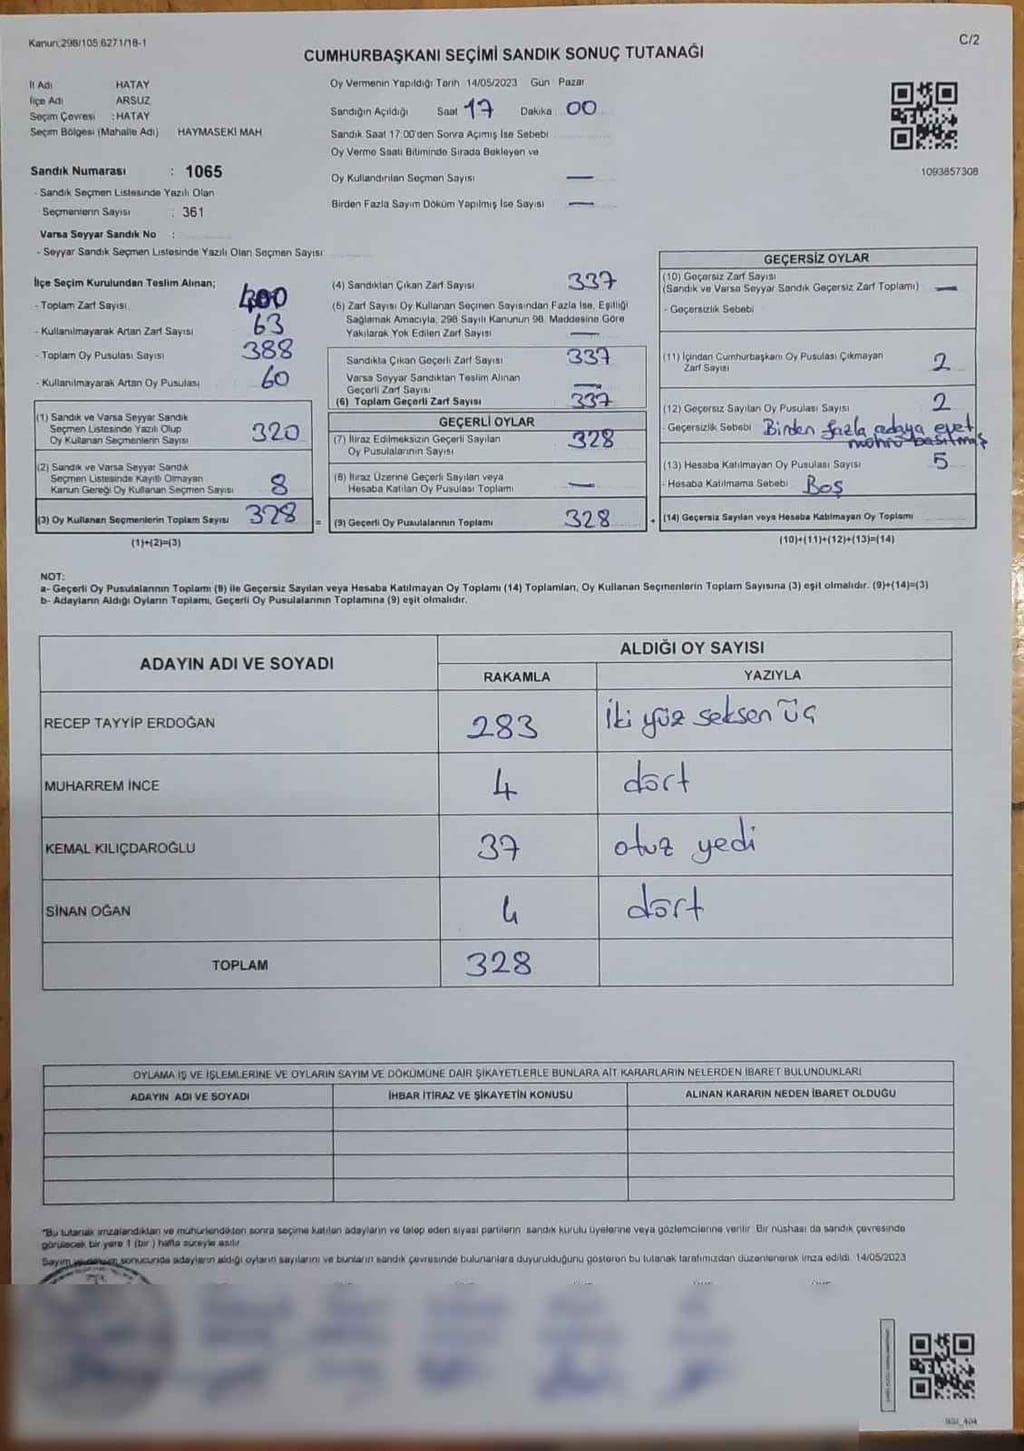 Kanun 298/105 6271/18-1
C/2
CUMHURBAŞKANI SEÇİMİ SANDIK SONUÇ TUTANAĞI
İl Adı HATAY
İlçe Adı ARSUZ
Seçim Çevresi : HATAY
Seçim Bölgesi (Mahalle Adı) HAYMASEKİ MAH
Sandık Numarası : 1065
- Sandık Seçmen Listesinde Yazılı Olan
Seçmenlerin Sayısı : 361
Varsa Seyyar Sandık No :
- Seyyar Sandık Seçmen Listesinde Yazılı Olan Seçmen Sayısı
Oy Vermenin Yapıldığı Tarih 14/05/2023 Gün Pazar
Sandığın Açıldığı Saat 17 Dakika 00
Sandık Saat 17:00'den Sonra Açımış İse Sebebi
Oy Verme Saati Bitiminde Sırada Bekleyen ve
Oy Kullandırılan Seçmen Sayısı —
Birden Fazla Sayım Döküm Yapılmış İse Sayısı —
1093857308
İlçe Seçim Kurulundan Teslim Alınan;
- Toplam Zarf Sayısı 400
- Kullanılmayarak Artan Zarf Sayısı 63
- Toplam Oy Pusulası Sayısı 388
- Kullanılmayarak Artan Oy Pusulası 60
(1) Sandık ve Varsa Seyyar Sandık
Seçmen Listesinde Yazılı Olup
Oy Kullanan Seçmenlerin Sayısı 320
(2) Sandık ve Varsa Seyyar Sandık
Seçmen Listesinde Kayıtlı Olmayan
Kanun Gereği Oy Kullanan Seçmen Sayısı 8
(3) Oy Kullanan Seçmenlerin Toplam Sayısı 328
(1)+(2)=(3)
=
(4) Sandıktan Çıkan Zarf Sayısı 337
(5) Zarf Sayısı Oy Kullanan Seçmen Sayısından Fazla İse, Eşitliği
Sağlamak Amacıyla, 298 Sayılı Kanunun 98. Maddesine Göre
Yakılarak Yok Edilen Zarf Sayısı —
Sandıkta Çıkan Geçerli Zarf Sayısı 337
Varsa Seyyar Sandıktan Teslim Alınan
Geçerli Zarf Sayısı —
(6) Toplam Geçerli Zarf Sayısı 337
GEÇERLİ OYLAR
(7) İtiraz Edilmeksizin Geçerli Sayılan
Oy Pusulalarının Sayısı 328
(8) İtiraz Üzerine Geçerli Sayılan veya
Hesaba Katılan Oy Pusulası Toplamı —
(9) Geçerli Oy Pusulalarının Toplamı 328
+
GEÇERSİZ OYLAR
(10) Geçersiz Zarf Sayısı
(Sandık ve Varsa Seyyar Sandık Geçersiz Zarf Toplamı) —
- Geçersizlik Sebebi
(11) İçinden Cumhurbaşkanı Oy Pusulası Çıkmayan
Zarf Sayısı 2
(12) Geçersiz Sayılan Oy Pusulası Sayısı 2
- Geçersizlik Sebebi Birden fazla adaya evet
mührü basılmış
(13) Hesaba Katılmayan Oy Pusulası Sayısı 5
- Hesaba Katılmama Sebebi Boş
(14) Geçersiz Sayılan veya Hesaba Katılmayan Oy Toplamı
(10)+(11)+(12)+(13)=(14)
NOT:
a- Geçerli Oy Pusulalarının Toplamı (9) ile Geçersiz Sayılan veya Hesaba Katılmayan Oy Toplamı (14) Toplamları, Oy Kullanan Seçmenlerin Toplam Sayısına (3) eşit olmalıdır. (9)+(14)=(3)
b- Adayların Aldığı Oyların Toplamı, Geçerli Oy Pusulalarının Toplamına (9) eşit olmalıdır.
ADAYIN ADI VE SOYADI
ALDIĞI OY SAYISI
RAKAMLA YAZIYLA
RECEP TAYYİP ERDOĞAN 283 İki yüz seksen üç
MUHARREM İNCE 4 dört
KEMAL KILIÇDAROĞLU 37 otuz yedi
SİNAN OĞAN 4 dört
TOPLAM 328
OYLAMA İŞ VE İŞLEMLERİNE VE OYLARIN SAYIM VE DÖKÜMÜNE DAİR ŞİKAYETLERLE BUNLARA AİT KARARLARIN NELERDEN İBARET BULUNDUKLARI
ADAYIN ADI VE SOYADI İHBAR İTİRAZ VE ŞİKAYETİN KONUSU ALINAN KARARIN NEDEN İBARET OLDUĞU
"Bu tutanak imzalandıktan ve mühürlendikten sonra seçime katılan adayların ve talep eden siyasi partilerin sandık kurulu üyelerine veya gözlemcilerine verilir. Bir nüshası da sandık çevresinde
görülecek bir yere 1 (bir) hafta süreyle asılır.
Sayım ve döküm sonucunda adayların aldığı oyların sayılarını ve bunların sandık çevresinde bulunanlara duyurulduğunu gösteren bu tutanak tarafımızdan düzenlenerek imza edildi. 14/05/2023